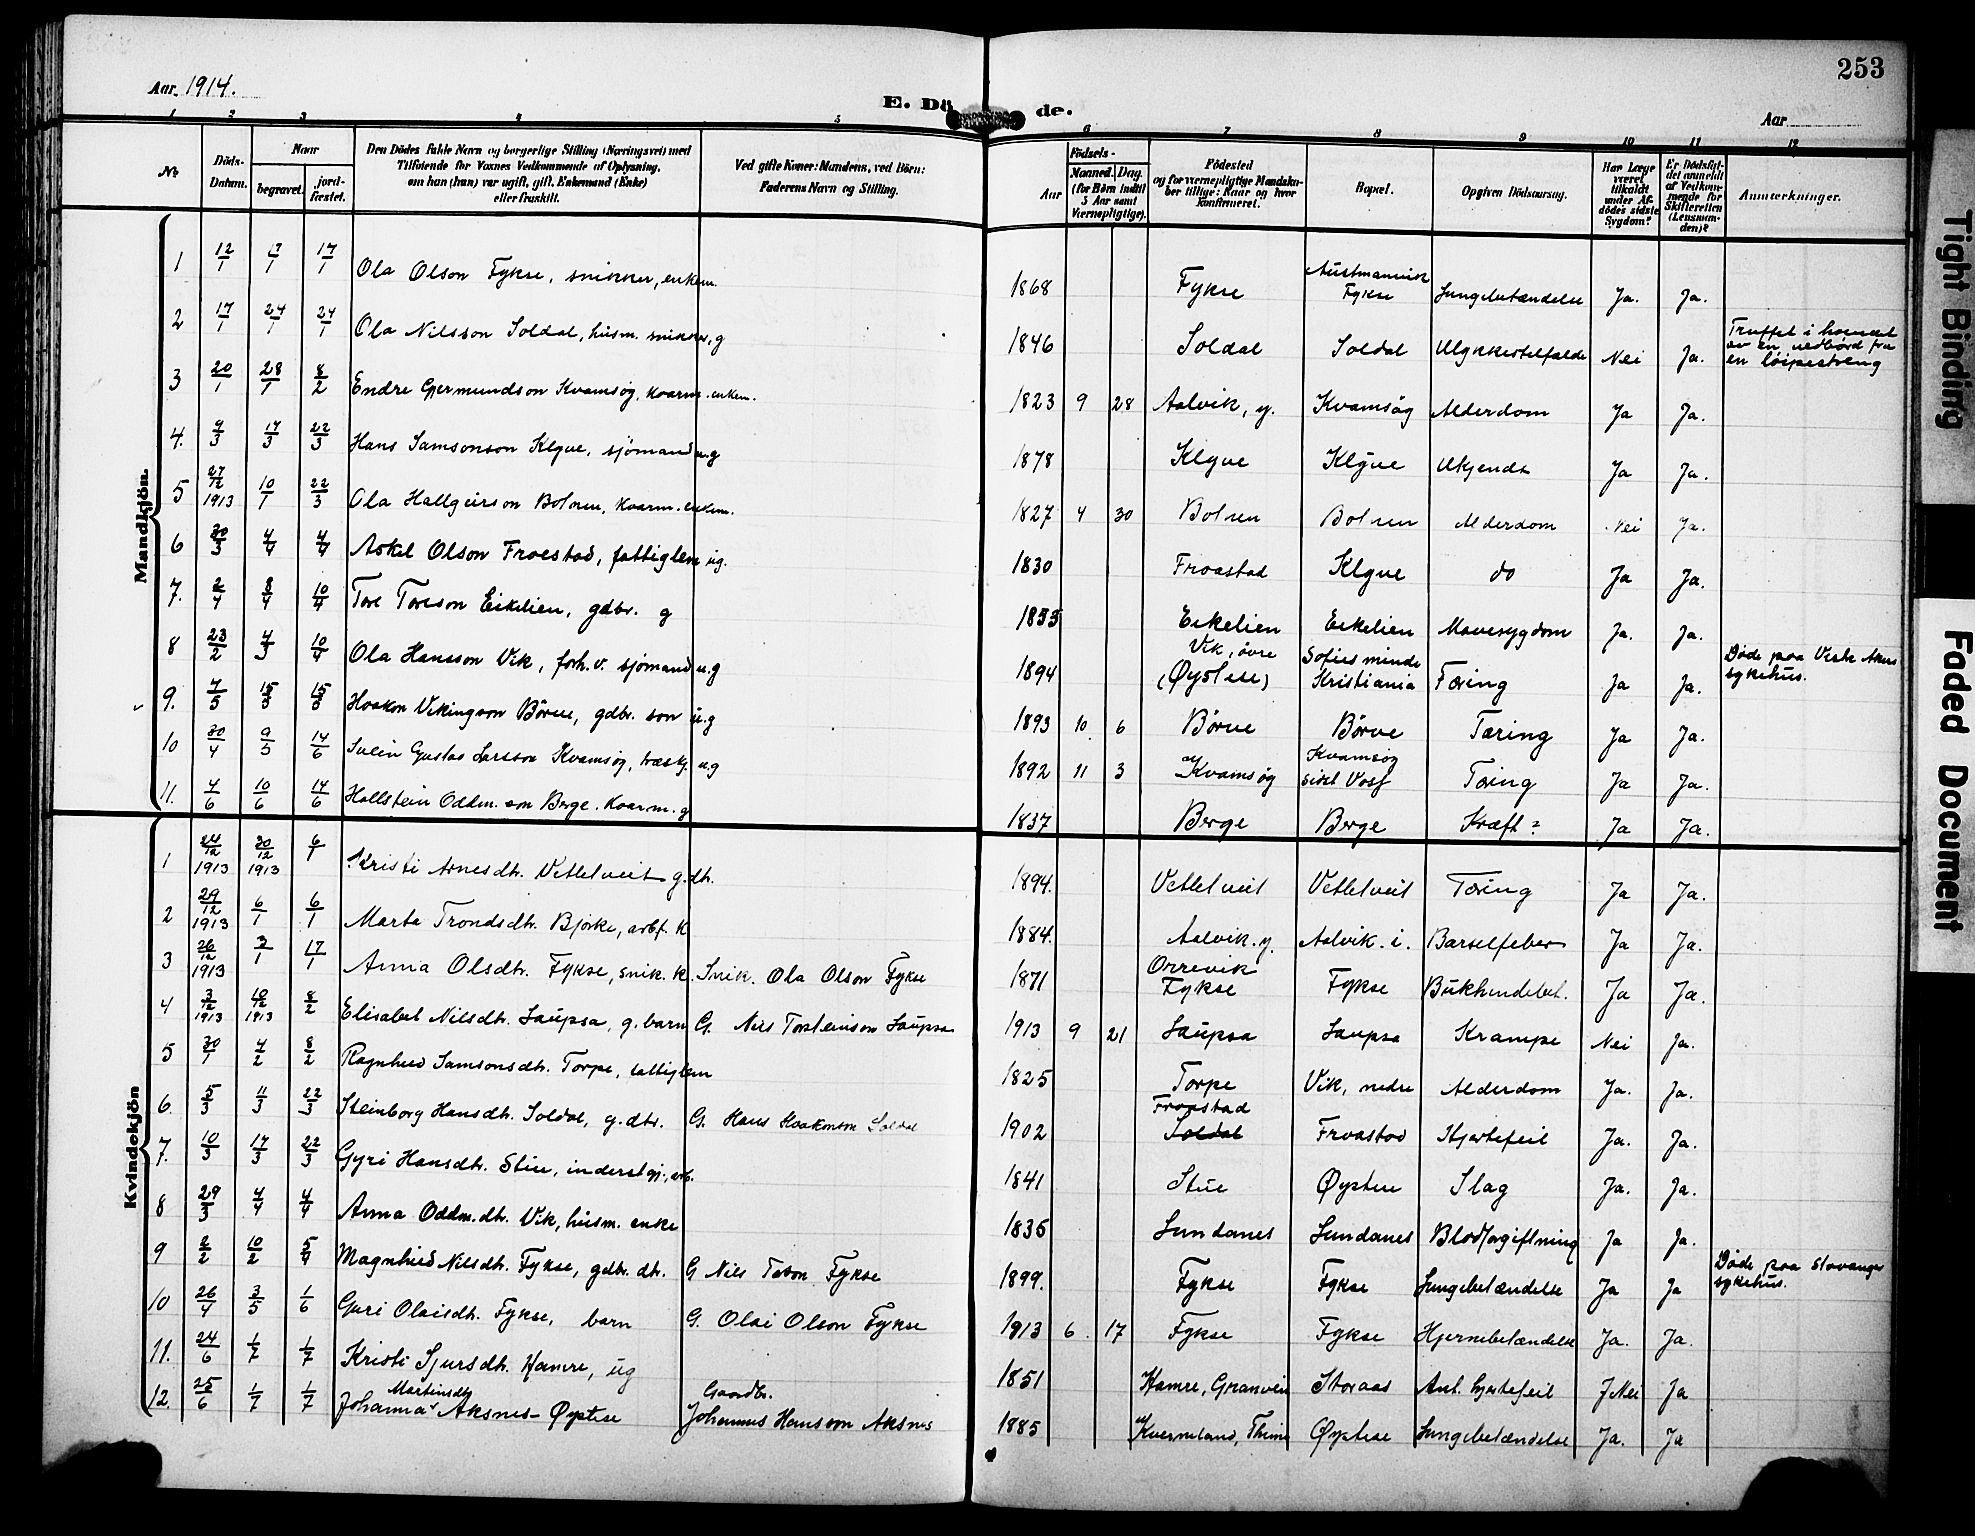 Aar 1914.
E. Dö de.
253
Aar
1 2 3 4 5 6 7 8 9 10 11 12
No
Döds-Datum.
Naar
begravet.
jord-fæstet.
Den Dödes fulde Navn og borgerlige Stilling (Næringsvei) med
Tilföiende for Voxnes Vedkommende af Oplysning,
om han (hun) var ugift, gift, Enkemand (Enke)
eller fraskilt.
Ved gifte Koner: Mandens, ved Börn:
Faderens Navn og Stilling.
Födsels-
Aar
Maaned. Dag.
(for Börn indtil
5 Aar samt
Værnepligtige).
Födested
og for værnepligtige Mandska-
ber tillige: Naar og hvor
konfirmeret.
Bopæl.
Opgiven Dödsaarsag.
Har Læge
været
tilkaldt
under Af-
dödes sidste
Sygdom?
Er Dödsfal-
det anmeldt
af Vedkom-
mende for
Skifteretten
(Lensman-
den)?
Anmærkninger.
Mandkjön.
1 12/1 17/1 17/1 Ola Olson Fykse, snikker, enkem. 1868 Fykse Austmannvik Fykse Lungebetændelse Ja. Ja.
2 17/1 24/1 24/1 Ola Nilsson Soldal, husm. snikker, g 1846 Soldal Soldal Ulykkestilfælde Nei Ja. Truffet i hovedet av en vedbörd fra en löipestreng
3 20/1 28/1 8/2 Endre Gjermundson Kvamsøg, kaarm. enkem. 1823 9 28 Aalvik, y. Kvamsøg Alderdom Ja Ja.
4. 9/3 17/3 22/3 Hans Samsonson Klyve, sjömand u.g 1878 Klyve Klyve Ukjendt Ja Ja.
5 27/12 1913 10/1 22/3 Ola Hallgeirson Botnen, kaarm. enkem. 1827 4 30 Botnen Botnen Alderdom Nei Ja.
6 30/3 4/4 4/4 Askel Olson Froestad, fattiglem ug. 1830 Froastad Klyve do Ja Ja.
7. 2/4 8/4 10/4 Tore Toreson Eikelien, gdbr. g 1855 Eikelien Eikelien Mavesygdom Ja. Ja.
8 23/2 4/3 10/4 Ola Hansson Vik, forh.v. sjömand u.g 1894 Vik, övre (Øystese) Sofies minde Kristiania Tæring Ja Ja. Döde paa Vestre Akers sykehus.
9. 7/5 15/5 15/5 Haakon Vikingson Børve, gdbr. son u.g 1893 10 6 Børve Børve Tæring Ja Ja.
10 30/4 9/5 14/6 Svein Gustav Larsson Kvamsøg, træskj. u.g 1892 11 3 Kvamsøg Kvamsøg sist Voss Tæring Ja Ja.
11. 4/6 10/6 14/6 Hallstein Oddm.son Berge. Kaarm. g 1837 Berge Berge Kræft? Ja Ja.
Kvindekjön
1 24/12 1913 30/12 1913 6/1 Kristi Arnesdtr. Vetletveit g.dtr. 1894. Vetletveit Vetletveit Tæring Ja Ja.
2 29/12 1913 6/1 6/1 Marta Trondsdtr. Bjørke, arbf. k 1884. Aalvik. y. Aalvik. i. Barselfeber Ja Ja.
3 26/12 1913 3/1 17/1 Anna Olsdtr. Fykse, snik. k. Snik. Ola Olson Fykse 1871 Orrevik Fykse Fykse Bukhindebet. Ja Ja.
4 3/12 1913 10/12 1913 8/2 Elisabet Nilsdtr. Laupsa, g. barn G. Nils Torsteinson Laupsa 1913 9 21 Laupsa Laupsa Krampe Nei Ja.
5 30/1 4/2 8/2 Ragnhild Samsonsdtr. Torpe, fattiglem 1825 Torpe Vik, nedre Alderdom Ja. Ja.
6. 5/3 11/3 22/3 Steinborg Hansdtr. Soldal, g. dtr. G. Hans Haakonson Soldal 1902 Froastad Soldal Froastad Hjertefeil Ja. Ja.
7. 10/3 17/3 22/3 Gyri Hansdtr. Stue, inderst gj. arb. 1841 Stue Øystese Slag Ja. Ja.
8 29/3 4/4 4/4 Anna Oddm.dtr. Vik, husm. enke 1835 Sundanes Sundanes Blodforgiftning Ja Ja.
9 2/2 10/2 5/4 Magnhild Nilsdtr. Fykse, gdbr. dtr. G Nils Fykse 1899. Fykse Fykse Lungebetændelse Ja Ja Döde paa Stavanger sykehus.
10 26/4 3/5 1/6 Guri Olaisdtr. Fykse, barn G. Olai Olson Fykse 1913 6. 17 Fykse Fykse Hjernebetændelse Ja. Ja.
11. 24/6 1/7 1/7 Kristi Sjursdtr. Hamre, ug 1851 Hamre, Granvin Storaas Ant. hjertefeil Nei Ja
12. 25/6 1/7 1/7 Johanna Martinsdtr Aksnes - Øystese Gaardbr. Johannes Hansson Aksnes 1885 Kverneland, Thime Øystese Lungebetændelse Ja. Ja
Tight Binding
Faded Document